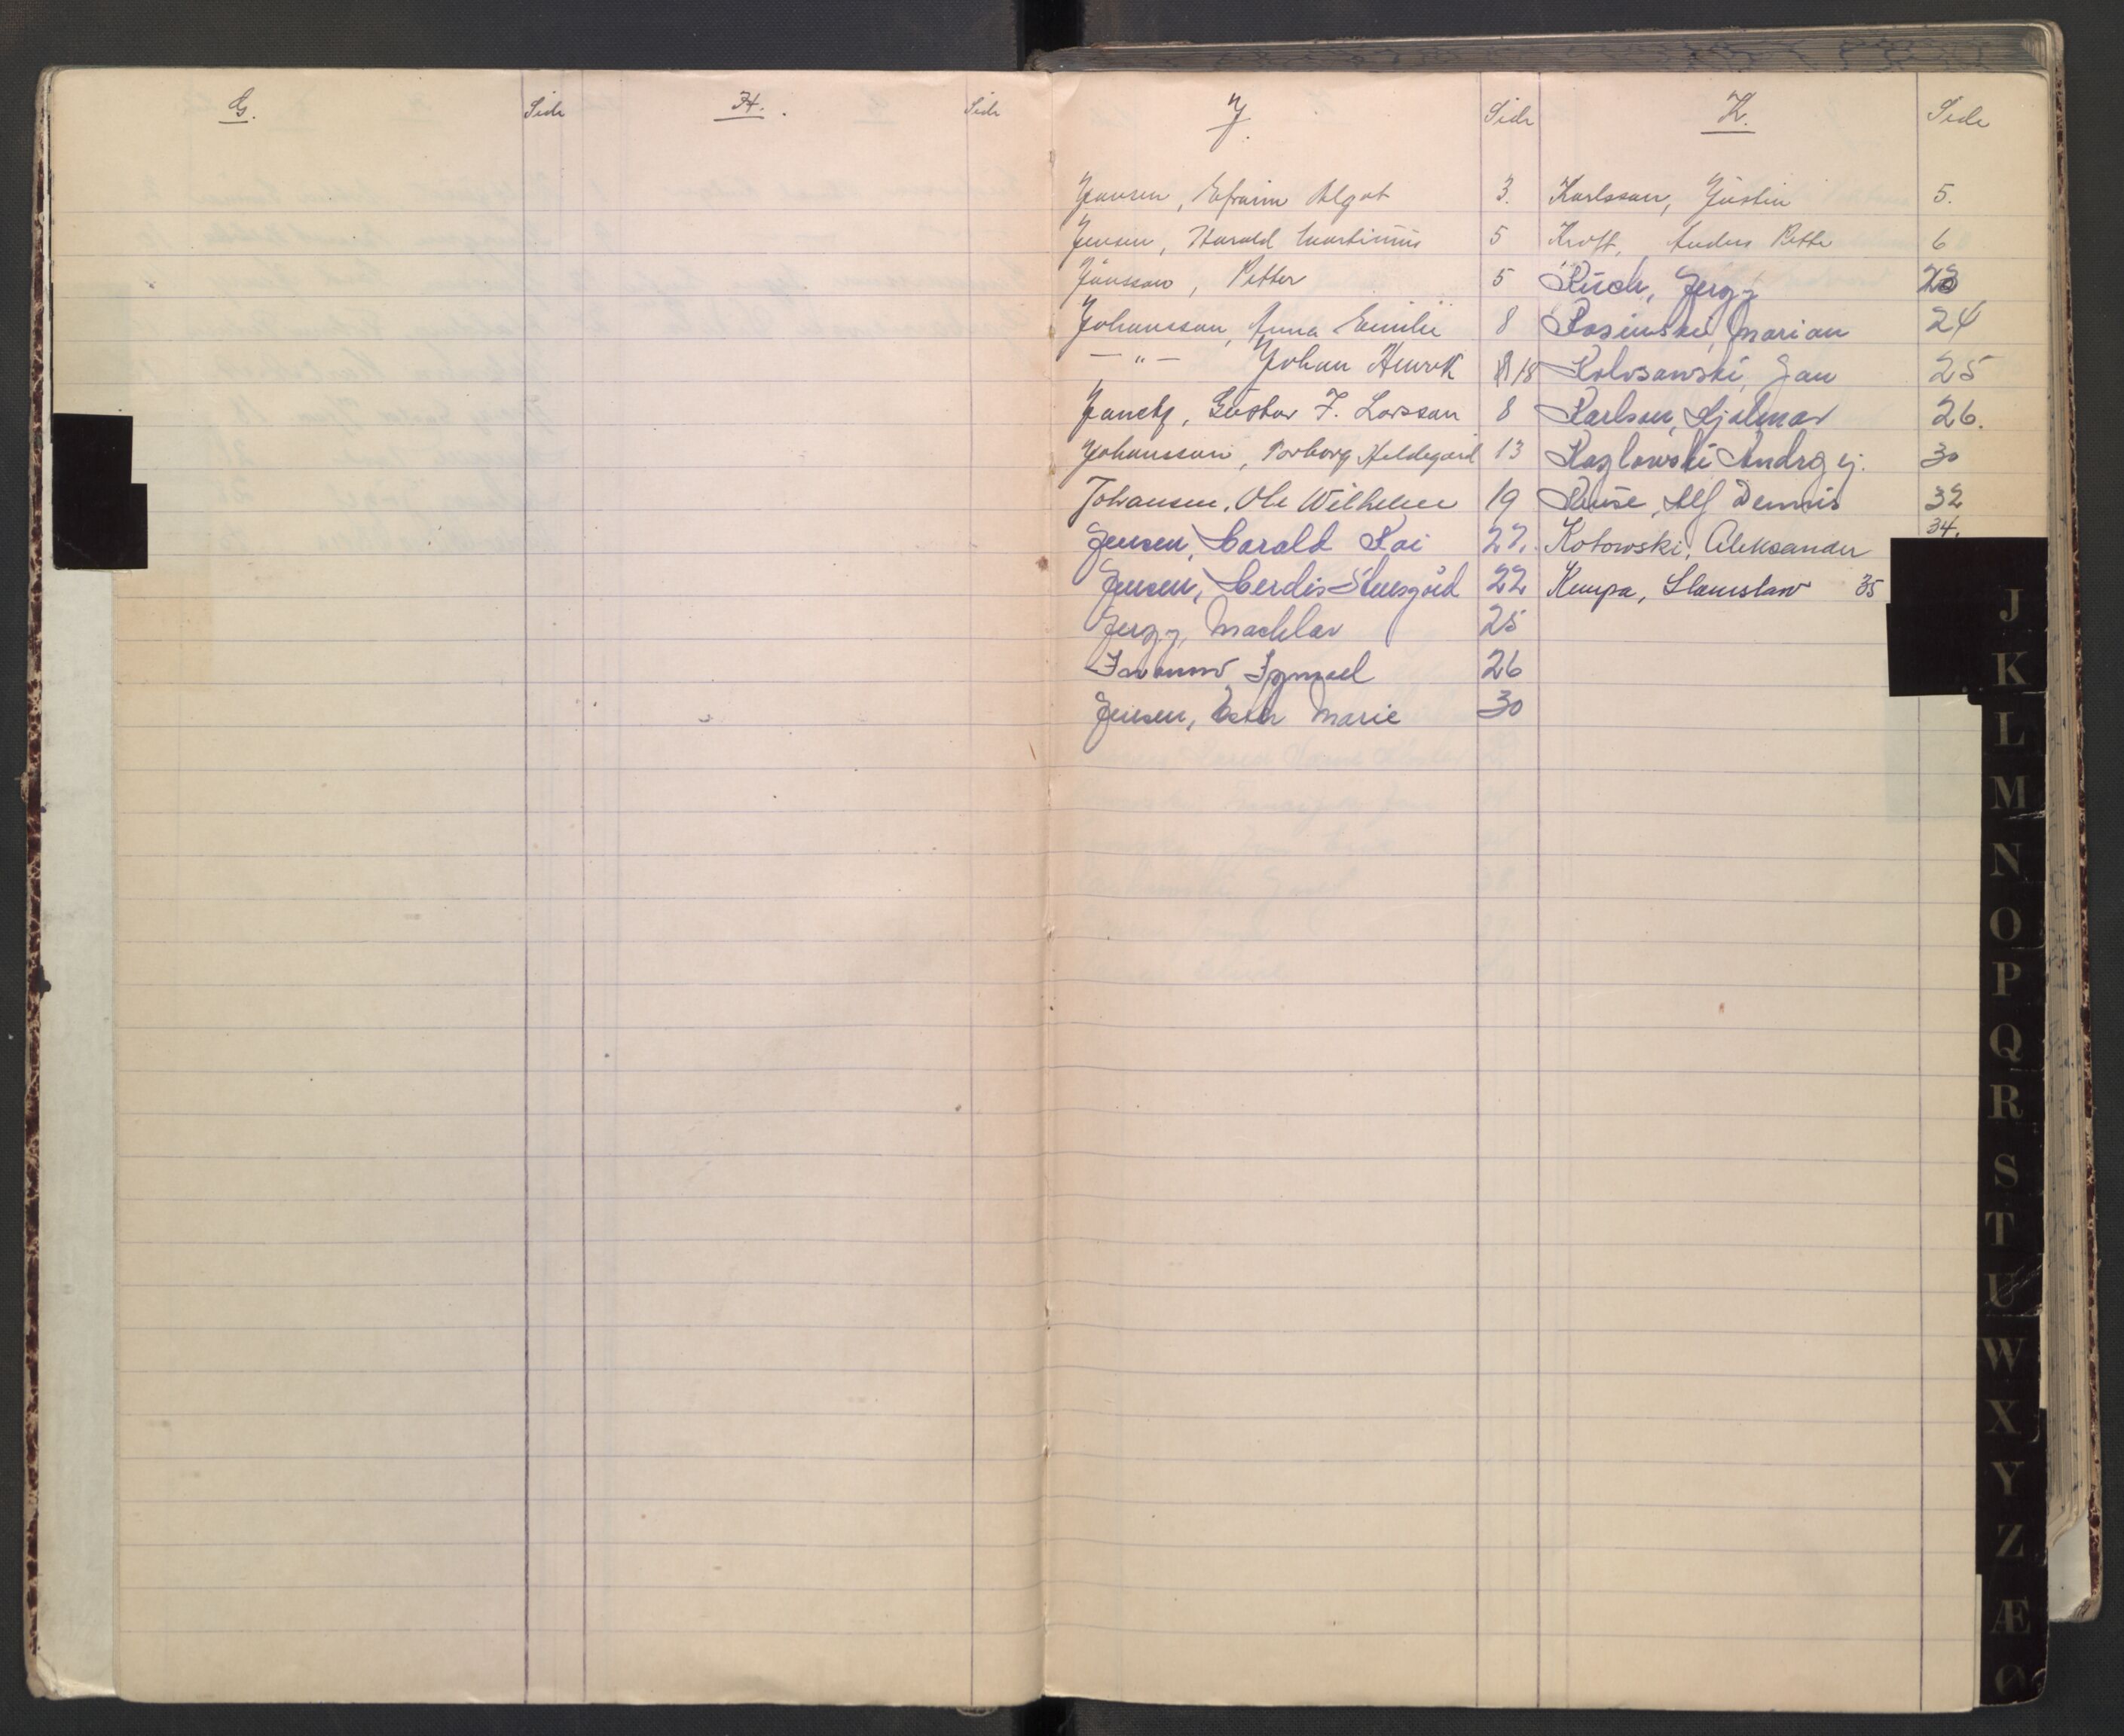 G. Side H. Side
J. Side
Jansen, Efraim Algot 3.
Jensen, Harald Martinius 5
Jönsson, Petter 5
Johansson, Anna Emilie 8
— " — Johan Henrik 18
Janetz, Gustav F. Larsson 8
Johansson, Torborg Hildegard 13
Johansen, Ole Wilhelm 19
Jensen, Harald Kai 22.
Jensen, Herdis 22
Jerzy, 25
26
Jensen, Ester Marie 30
K. Side
Karlsson, Justin 5.
Kroft, Anders Petter 6
Jerzy 23
Kosinski, Marian 24
Kolosowski, Jan 25
Karlson, Hjalmar 26.
Kozlowski Andrzej. 30
Kruse, Alf Dennis 32
Kotowski, Aleksander 34.
Kempa, Stanislaw 35
J
K
L
M
N
O
P
Q
R
S
T
U
W
X
Y
Z
Æ
Ø